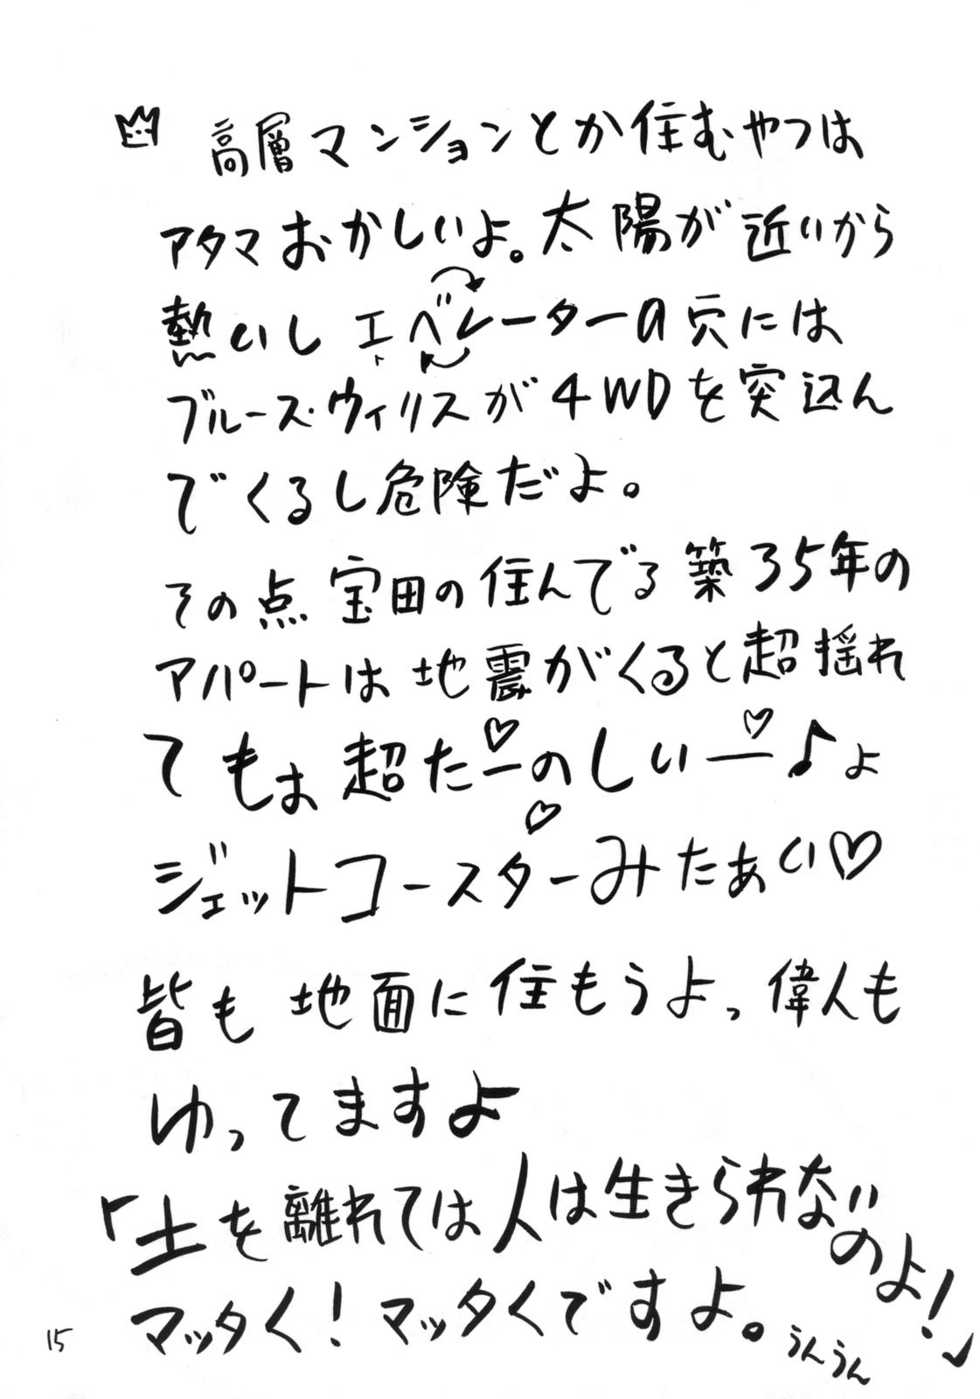 高層マンションとか住むやつは
アタマおかしいよ。太陽が近いから
熱いし エベレーターの穴には
ブルース・ウィリスが4WDを突込ん
でくるし危険だよ。
その点 宝田の住んでる築35年の
アパートは地震がくると超揺れ
てもお超たーのしいー♪よ
ジェットコースターみたぁい♡
皆も地面に住もうよっ偉人も
ゆってますよ
「土を離れては人は生きられないのよ！」
マッタく！マッタくですよ。うんうん
15